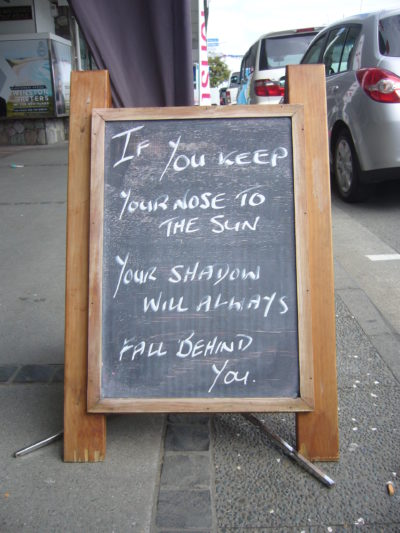 If You KEEP
YOUR NOSE TO
THE SUN
YOUR SHADOW
WILL ALWAYS
FALL BEHIND
YOU.